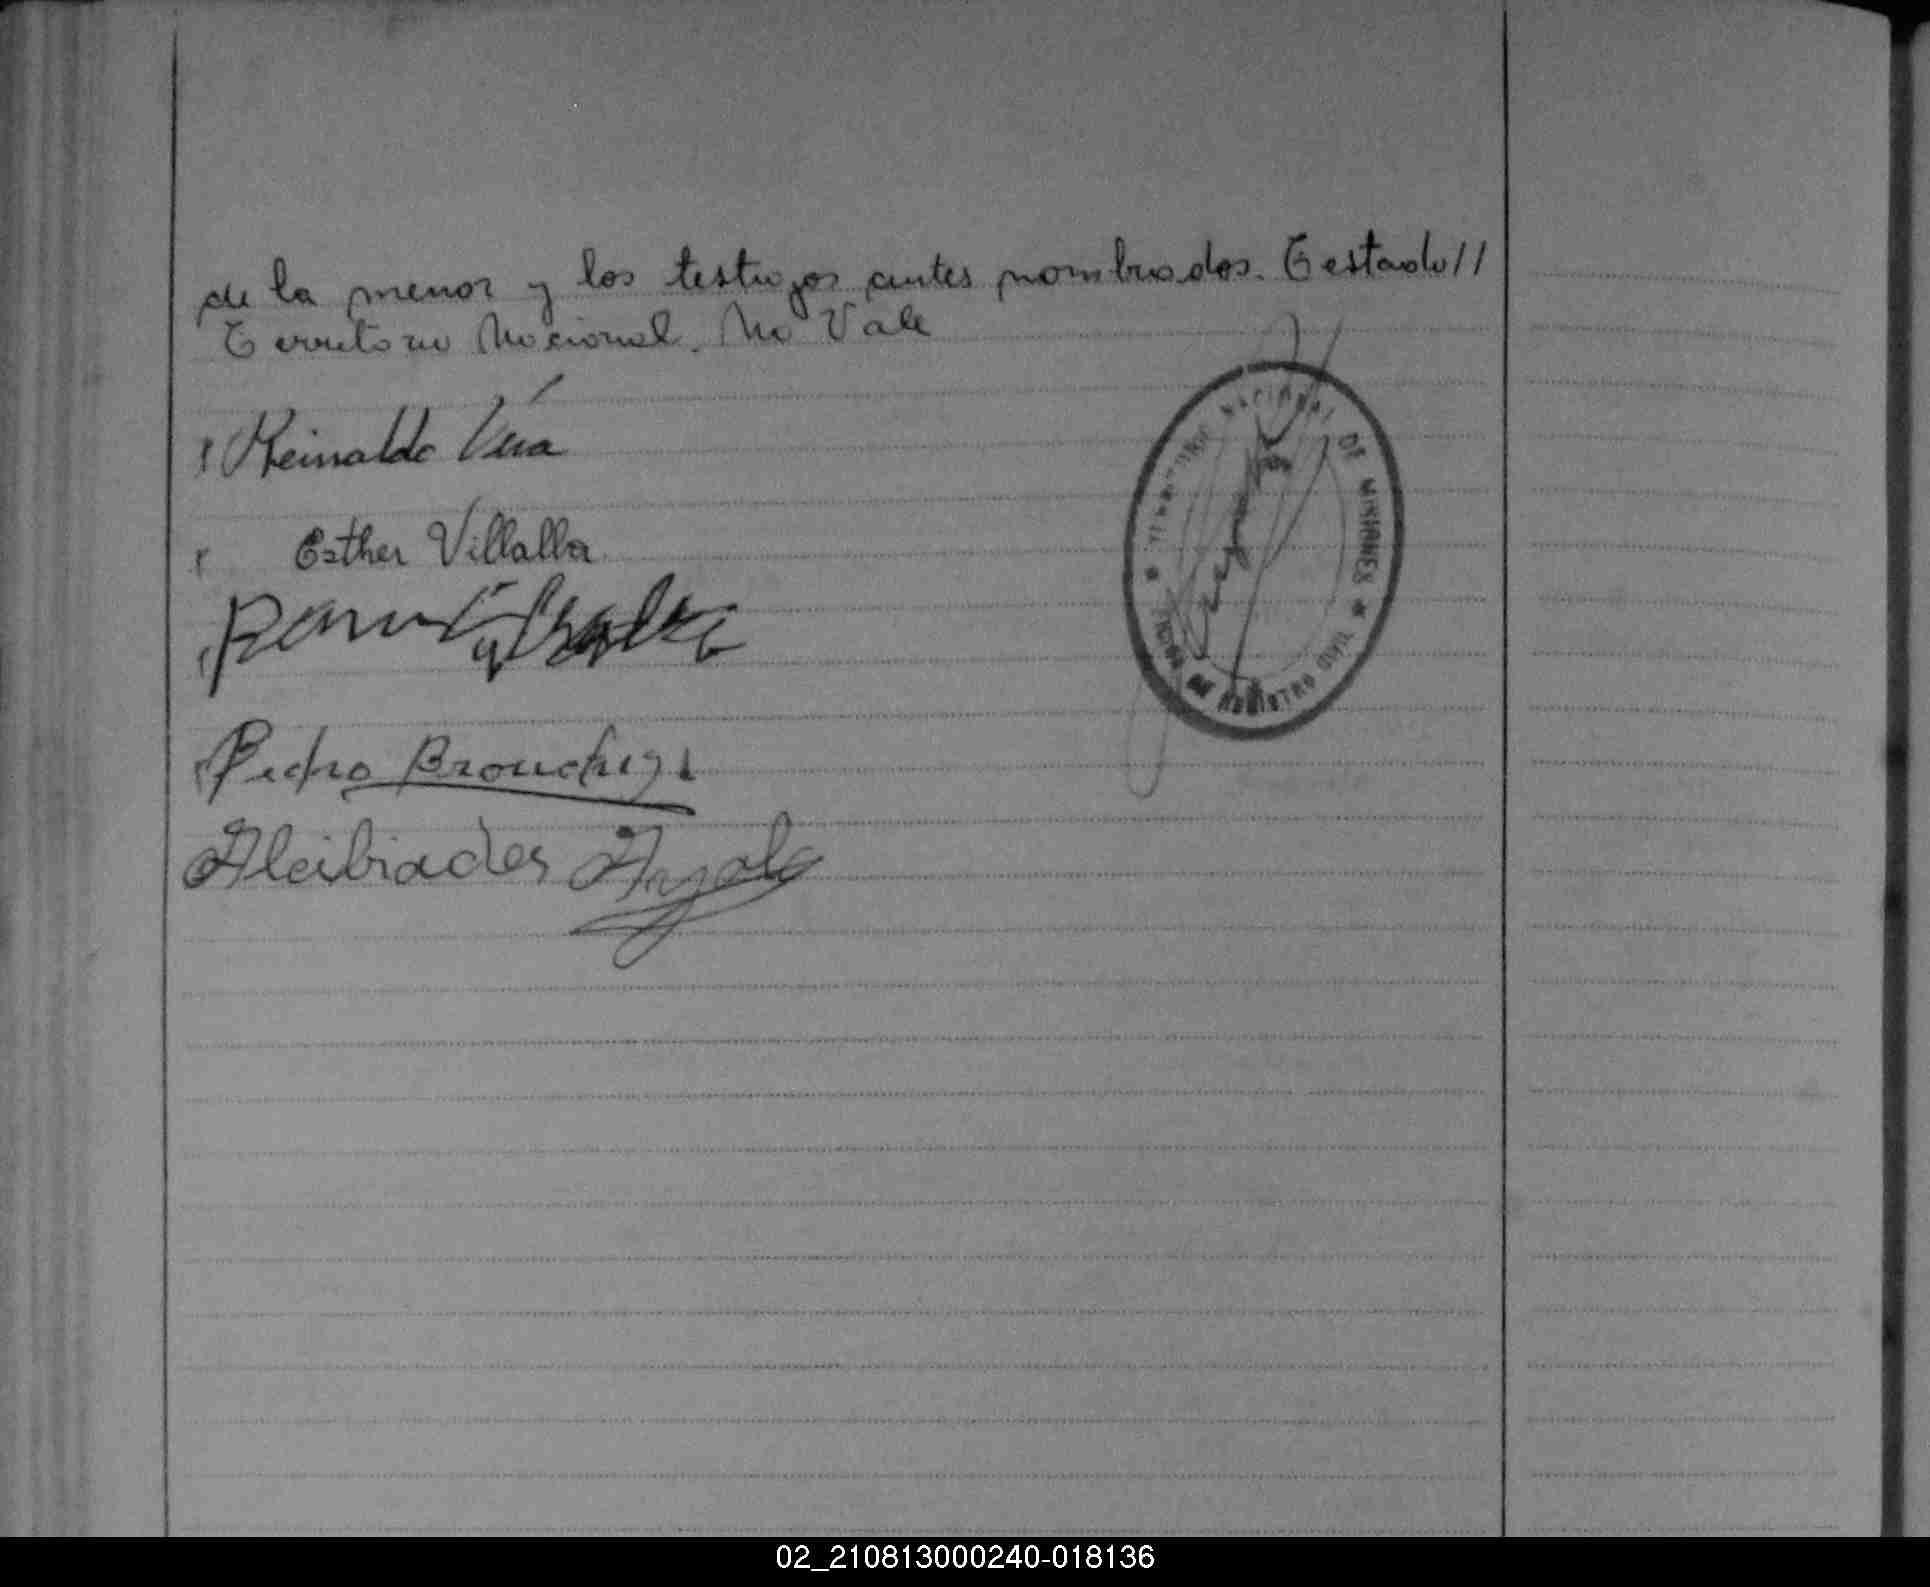 de la menor y los testigos antes nombrados. Testado//
Territorio Nacional. No Vale
Reinaldo Vera
Esther Villalba
Ramón Villalba
Pedro
Alcibiades Ayala
TERRITORIO NACIONAL DE MISIONES
DE REGISTRO CIVIL
02_210813000240-018136